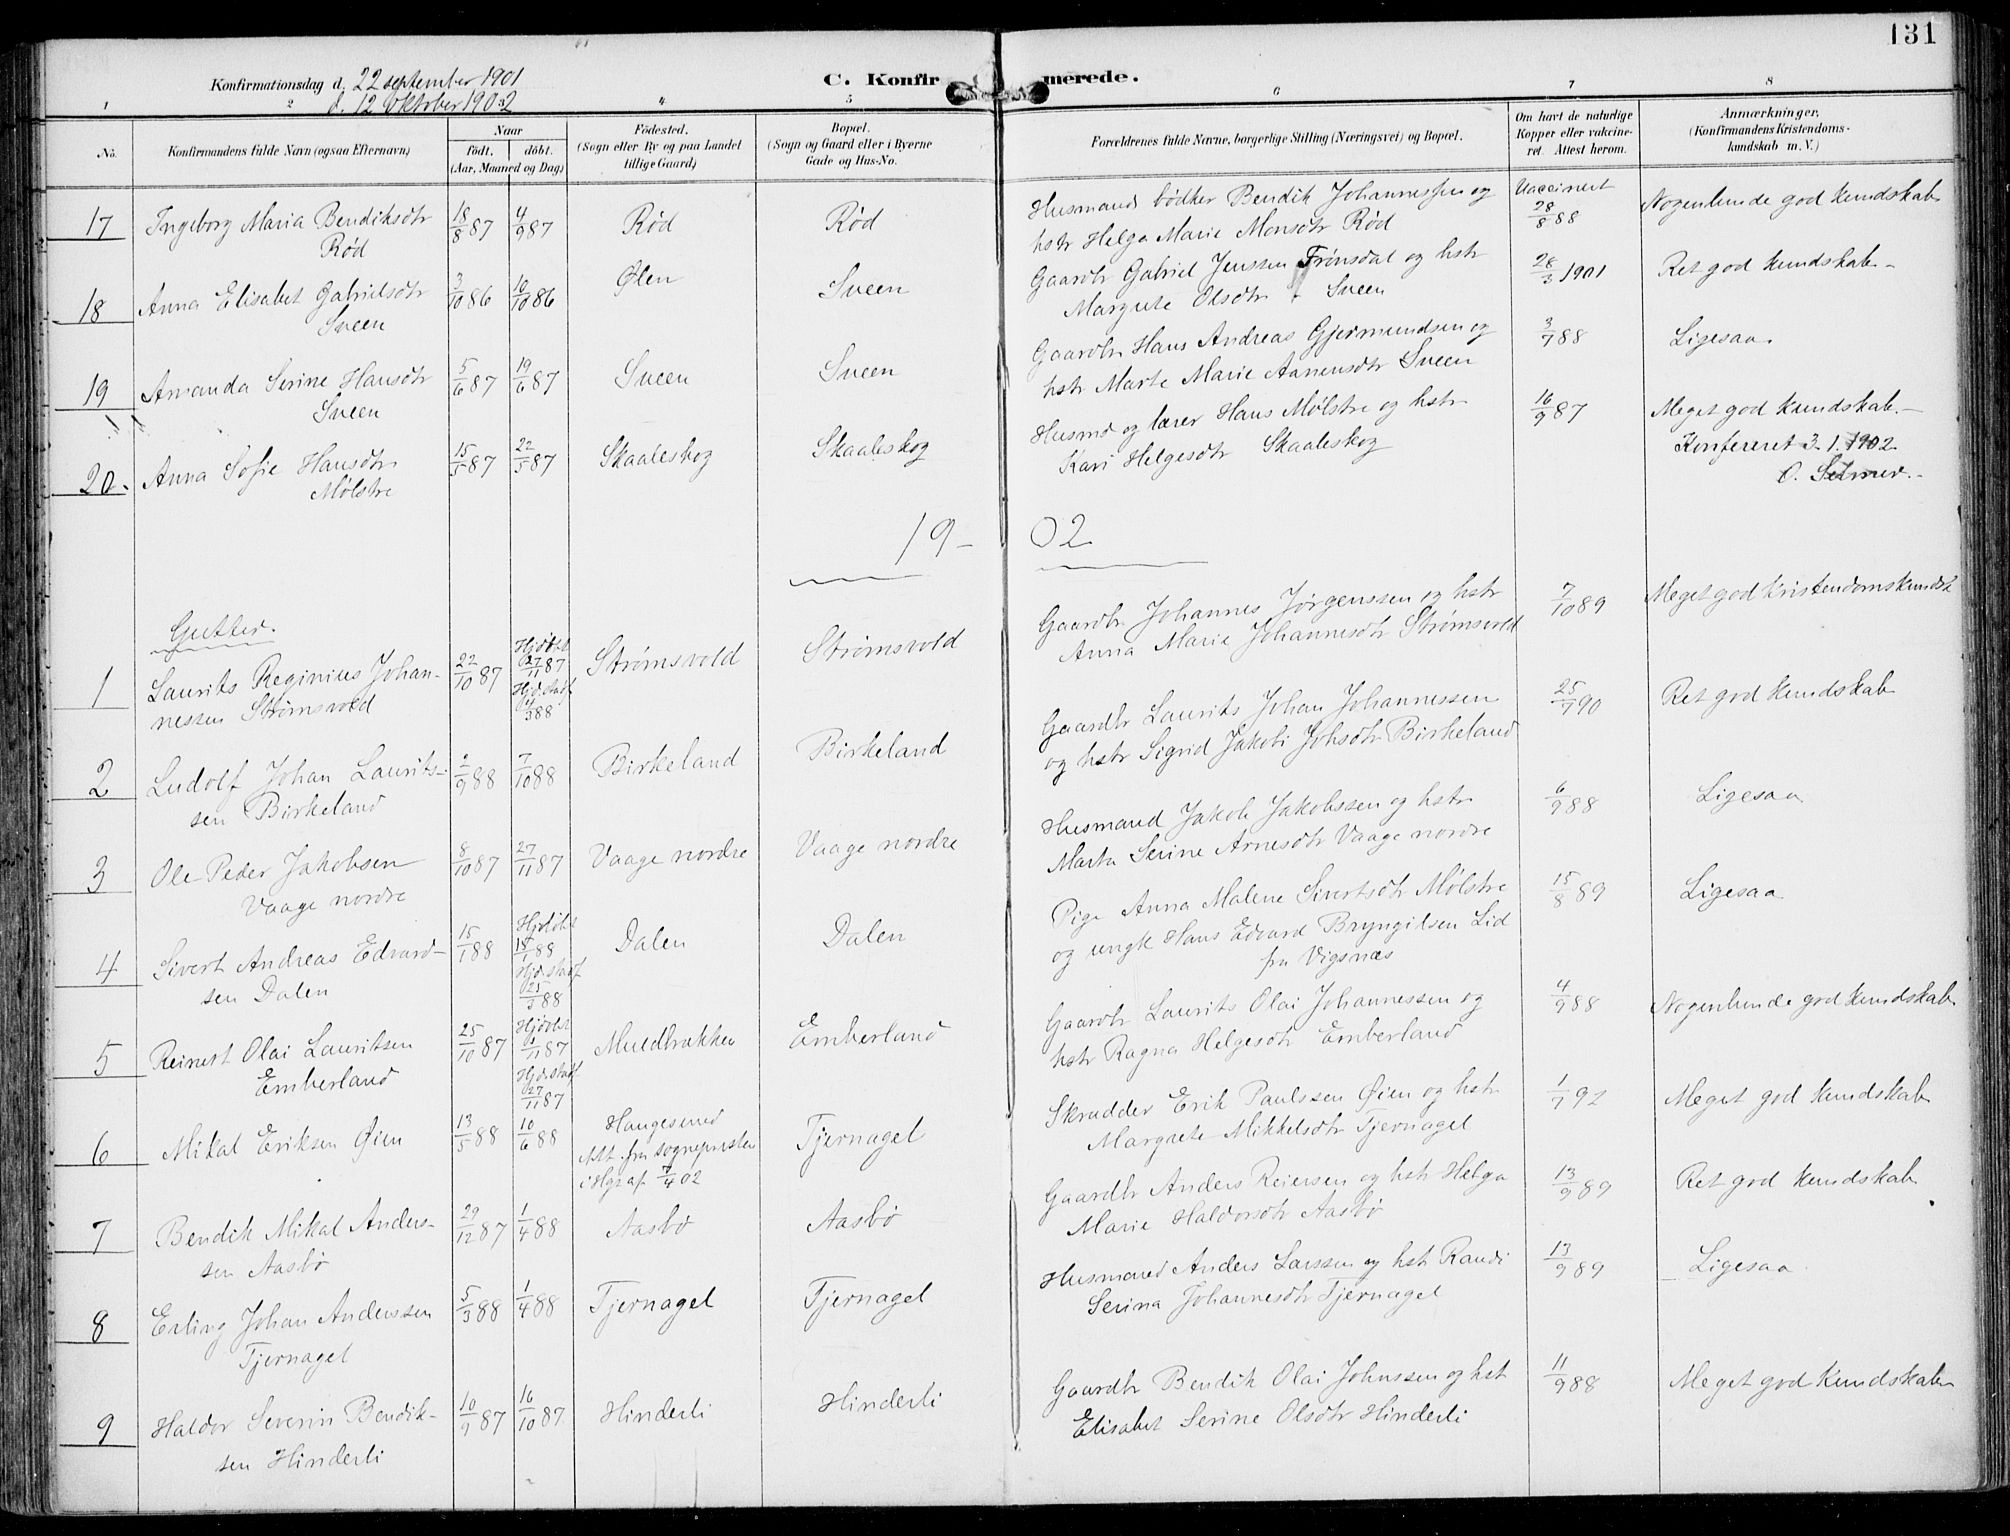 131
Konfirmationsdag d. 22 september 1901
d. 12 Oktober 1902
C. Konfirmerede.
1 2 3 4 5 6 7 8
No.
Konfirmandens fulde Navn (ogsaa Efternavn)
Naar
födt. döbt.
(Aar, Maaned og Dag)
Födested.
(Sogn eller By og paa Landet
tillige Gaard)
Bopæl.
(Sogn og Gaard eller i Byerne
Gade og Hus-No.
Forældrenes fulde Navne, borgerlige Stilling (Næringsvei) og Bopæl.
Om havt de naturlige
Kopper eller vakcine-
ret. Attest herom.
Anmærkninger.
(Konfirmandens Kristendoms-
kundskab m. V.)
17 Ingeborg Maria Bendiksdtr 18/8 87 4/9 87 Rød Rød Husmand bødker Bendik Johannessen og Vaccineret 28/8 88 Nogenlunde god kundskab
Rød hstr Helga Marie Monsdtr Rød
18 Anna Elisabet Gabrielsdtr 3/10 86 10/10 86 Ølen Sveen Gaardbr Gabriel Jenssen Trønsdal og hstr 28/3 1901 Ret god kundskab
Sveen Margrete Olsdtr Sveen
19 Amanda Serine Hansdtr 5/6 87 19/6 87 Sveen Sveen Gaardbr Hans Andreas Gjermundsen og 3/7 88 Ligesaa
Sveen hstr Marte Marie Aanensdtr Sveen
20. Anna Sofie Hansdtr 15/5 87 22/5 87 Skaaleskog Skaaleskog Husmd og lærer Hans Mølstre og hstr 16/9 87 Meget god kundskab.
Mølstre Kari Helgesdtr Skaaleskog Konfereret 3.1.1902
O. Selmer.
19-02
Gutter.
1 Laurits Reginius Johan- 22/10 87 Hjdøbt 27/11 87 Strømsvold Strømsvold Gaardbr Johannes Jørgenssen og hstr 7/10 89 Meget god Kristendomskundsk
nessen Strømsvold Hjd. stadf 4/3 88 Anna Marie Johannesdtr Strømsvold
2 Ludolf Johan Laurits- 2/9 88 7/10 88 Birkeland Birkeland Gaardbr Laurits Johan Johannessen 25/7 90 Ret god kundskab
sen Birkeland og hstr Sigrid Jakobi Johsdtr Birkeland
3 Ole Peder Jakobsen 8/10 87 27/11 87 Vaage nordre Vaage nordre Husmand Jakob Jakobssen og hstr 6/9 88 Ligesaa
Vaage nordre Marta Serine Arnesdtr Vaage nordre
4 Sivert Andreas Edvard- 15/1 88 Hjdøbt 15/1 88 Dalen Dalen Pige Anna Malene Sivertsdtr Mølstre 15/8 89 Ligesaa
sen Dalen Hjd. stadf 25/3 88 og ungk Hans Edvard Bryngilsen Lid
fra Vigsnæs
5 Reinert Olai Lauritsen 25/10 87 Hjdøbt 1/11 87 Muldbrækken Emberland Gaardbr Laurits Olai Johannessen og 4/9 88 Nogenlunde god kundskab
Emberland Hjd. stadf 27/11 87 hstr Ragna Helgesdtr Emberland
6 Mikal Eriksen Øien 13/5 88 10/6 88 Haugesund Tjernagel Skrædder Erik Paulssen Øien og hstr 1/7 92 Meget god kundskab
Att. fra sognepresten Margrete Mikkelsdtr Tjernagel
i Hgs af 7/4 02
7 Bendik Mikal Anders- 29/12 87 1/4 88 Aasbø Aasbø Gaardbr Anders Reiersen og hstr Helga 13/9 89 Ret god kundskab
sen Aasbø Marie Haldorsdtr Aasbø
8 Erling Johan Anderssen 5/3 88 1/4 88 Tjernagel Tjernagel Husmand Anders Larssen og hstr Randi 13/9 89 Ligesaa
Tjernagel Serina Johannesdtr Tjernagel
9 Haldor Severin Bendik- 10/9 87 16/10 87 Hinderli Hinderli Gaardbr Bendik Olai Johnssen og hst 11/9 88 Meget god kundskab
sen Hinderli Elisabet Serine Olsdtr Hinderli